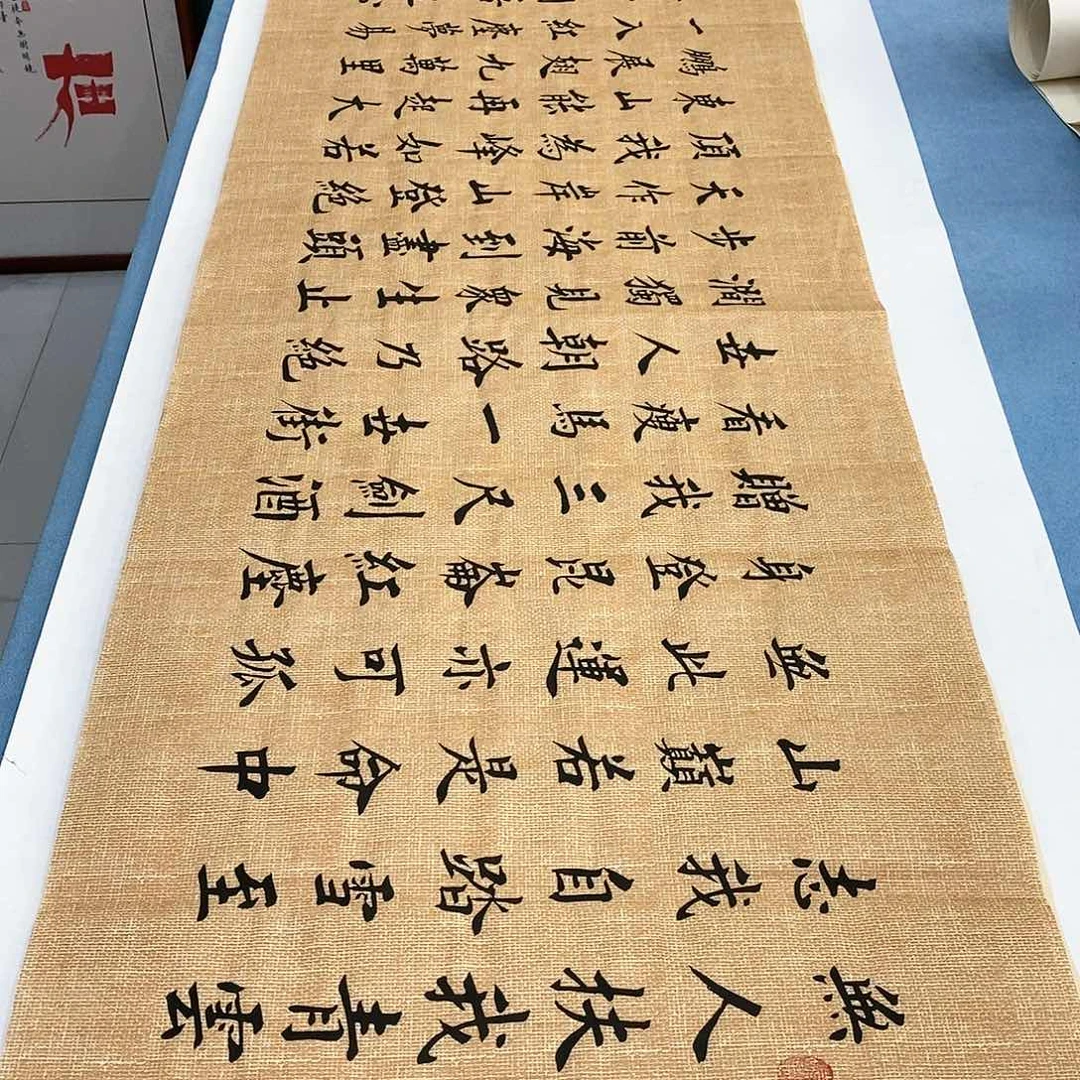 無人扶我青雲
志我自踏雪至
山巔若是命中
無此運亦可孤
身登昆崙紅塵
贈我三尺劍酒
看瘦馬一世衝
世人朝路乃絕
澗獨見眾生止
步前海到盡頭
天作岸山登絕
頂我為峰如若
東山能再起大
鵬展翅九萬里
一入紅塵夢易